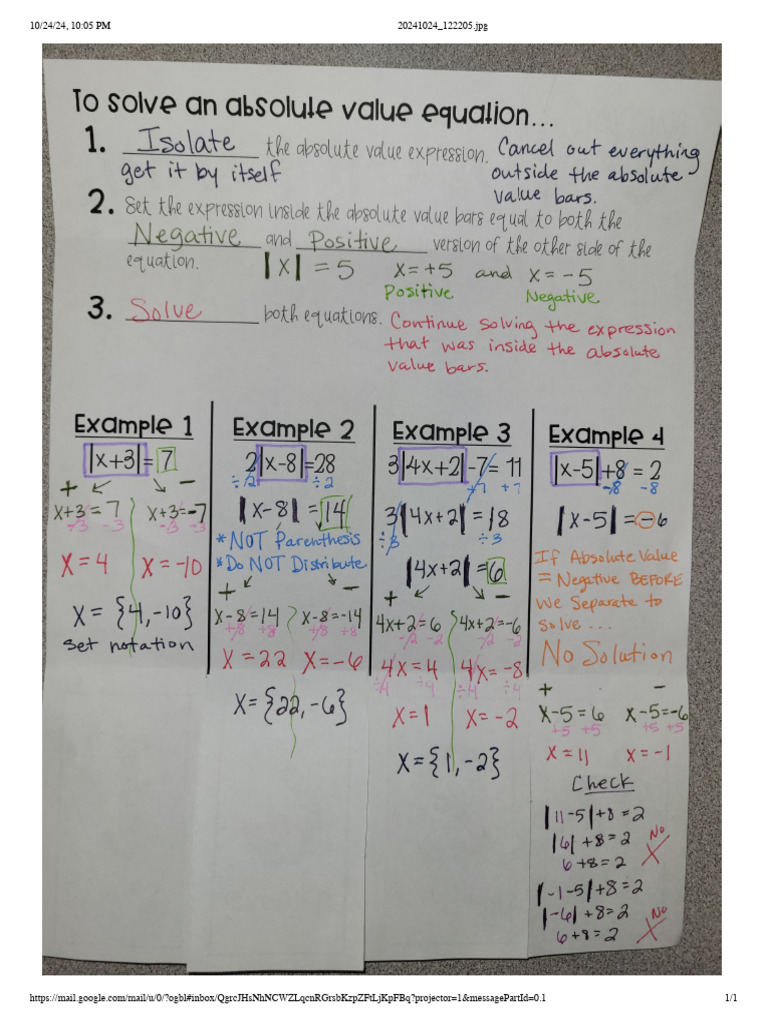 10/24/24, 10:05 PM 20241024_122205.jpg
To solve an absolute value equation...
1. Isolate the absolute value expression. Cancel out everything
get it by itself outside the absolute
value bars.
2. Set the expression inside the absolute value bars equal to both the
Negative and Positive version of the other side of the
equation. |x| = 5 x = +5 and x = -5
Positive Negative
3. Solve both equations. Continue solving the expression
that was inside the absolute
value bars.
Example 1
|x+3|=7
+ -
x+3=7 x+3=-7
-3 -3 -3 -3
x=4 x=-10
x={4,-10}
set notation
Example 2
2|x-8|=28
÷2 ÷2
|x-8|=14
*NOT Parenthesis
*Do NOT Distribute
+ -
x-8=14 x-8=-14
+8 +8 +8 +8
x=22 x=-6
x={22,-6}
Example 3
3|4x+2|-7=11
+7 +7
3|4x+2|=18
÷3 ÷3
|4x+2|=6
+ -
4x+2=6 4x+2=-6
-2 -2 -2 -2
4x=4 4x=-8
÷4 ÷4 ÷4 ÷4
x=1 x=-2
x={1,-2}
Example 4
|x-5|+8=2
-8 -8
|x-5|=-6
If Absolute Value
= Negative BEFORE
we Separate to
solve...
No Solution
+ -
x-5=6 x-5=-6
+5 +5 +5 +5
x=11 x=-1
Check
|11-5|+8=2
|6|+8=2 No
6+8=2 X
|-1-5|+8=2
|-6|+8=2 No
6+8=2 X
https://mail.google.com/mail/u/0/?ogbl#inbox/QgrcJHsNhNCWZLqcnRGrsbKzpZFtLjKpFBq?projector=1&messagePartId=0.1 1/1